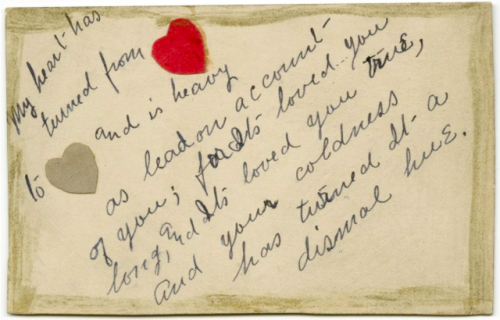 My heart has
turned from
to and is heavy
as lead on account
of you; for Its loved you
long, and Its loved you true,
And your coldness
has turned It a
dismal hue.